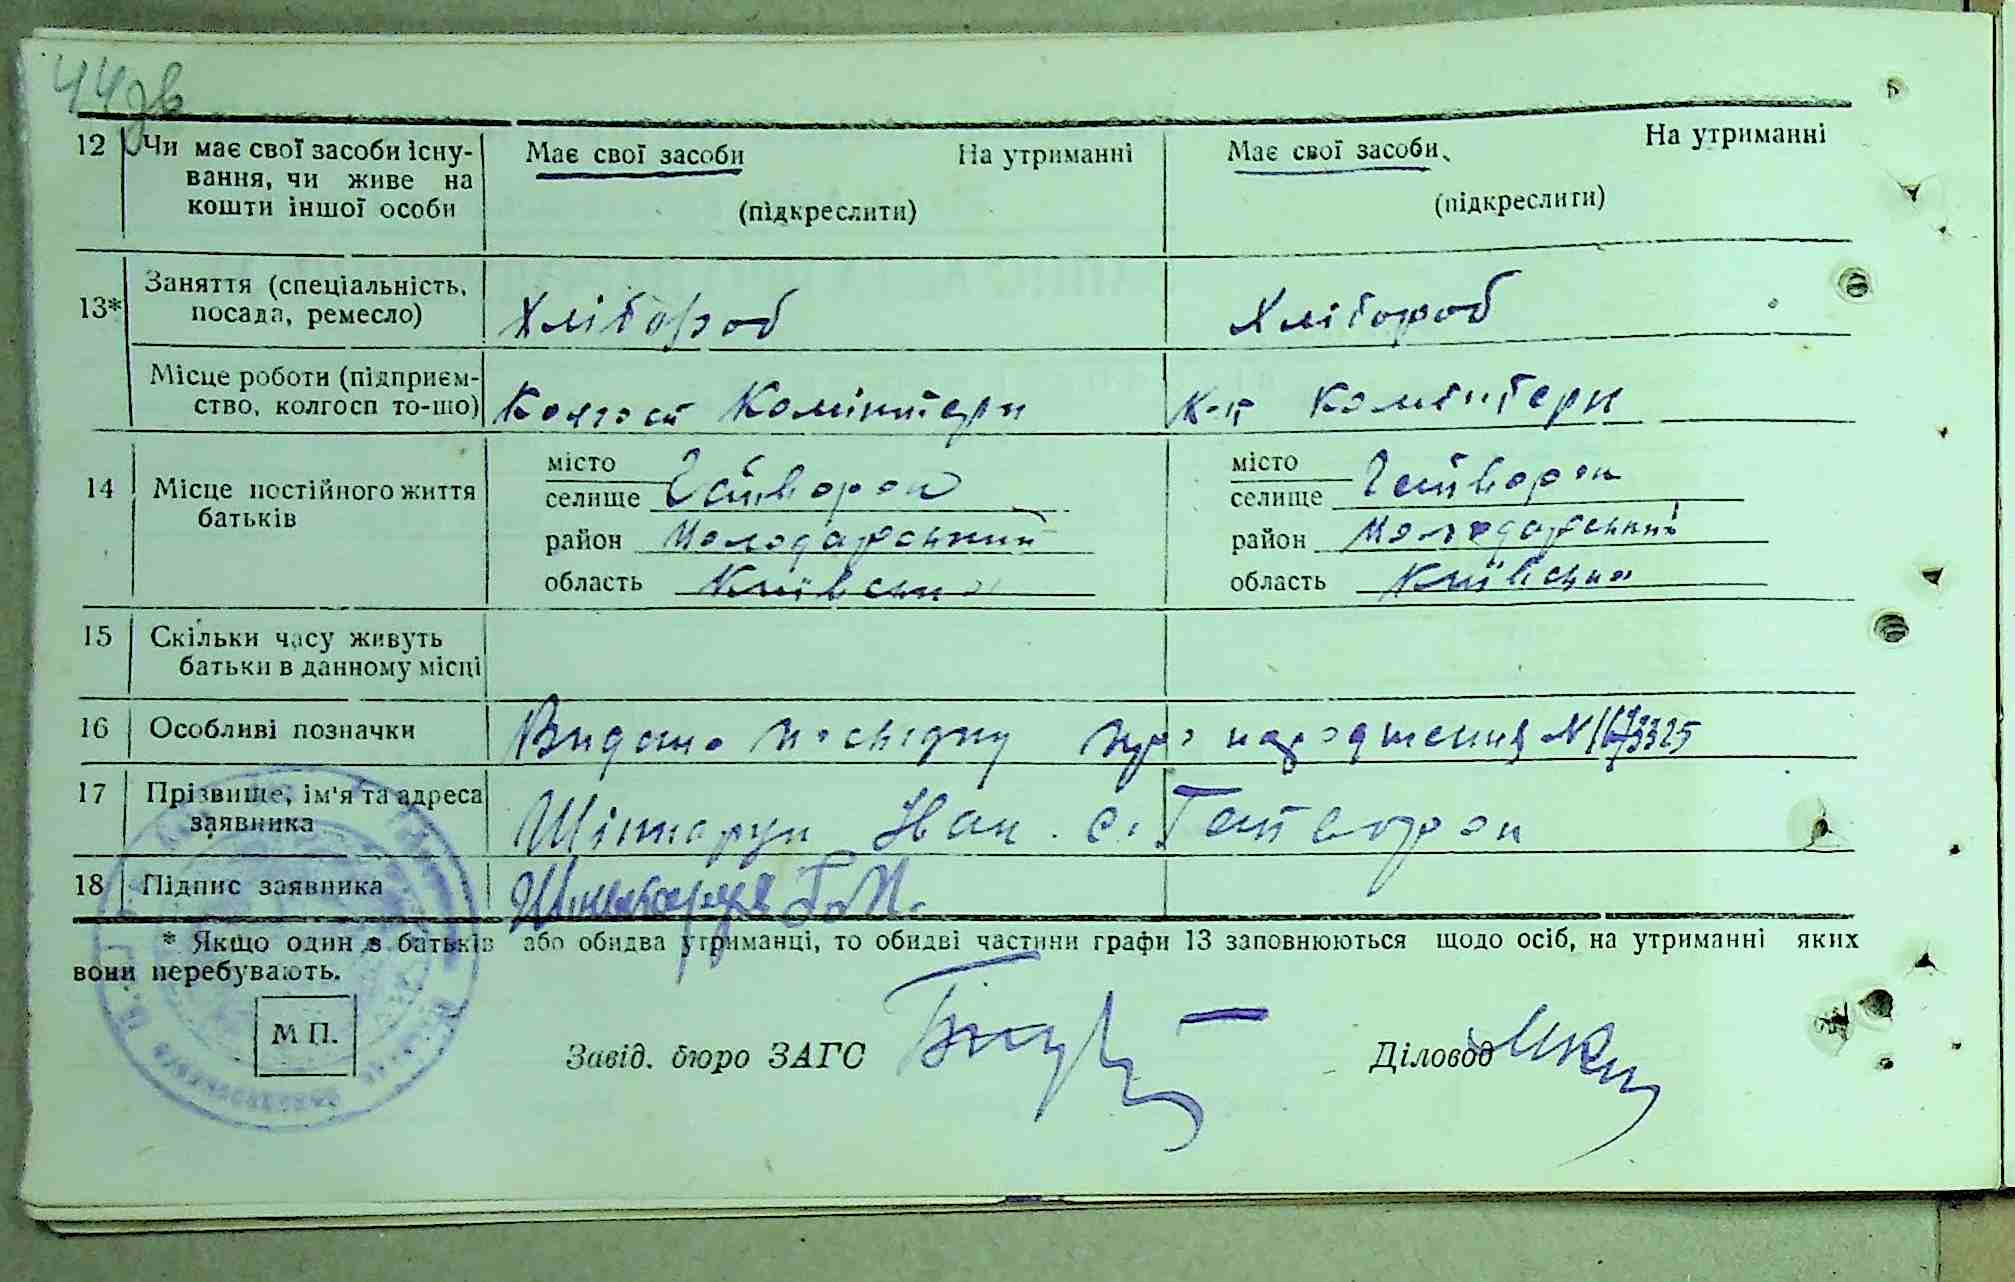 44зв
12 Чи має свої засоби існу- Має свої засоби На утриманні Має свої засоби На утриманні
вання, чи живе на
кошти іншої особи (підкреслити) (підкреслити)
13* Заняття (спеціальність, Хлібороб Хлібороб
посада, ремесло)
Місце роботи (підприєм- Колгосп Комінтерн К-п Комінтерн
ство, колгосп то-що)
14 Місце постійного життя батьків
місто місто
селище Гейсиорон селище
район Володарський район Володарський
область Київська область Київська
15 Скільки часу живуть
батьки в данному місці
16 Особливі позначки Видано посвідку про народження №
17 Прізвище, ім'я та адреса Шинкарук Іван с.
заявника
18 Підпис заявника
* Якщо один з батьків або обидва утриманці, то обидві частини графи 13 заповнюються щодо осіб, на утриманні яких
вони перебувають.
М П.
Завід. бюро ЗАГС Діловод